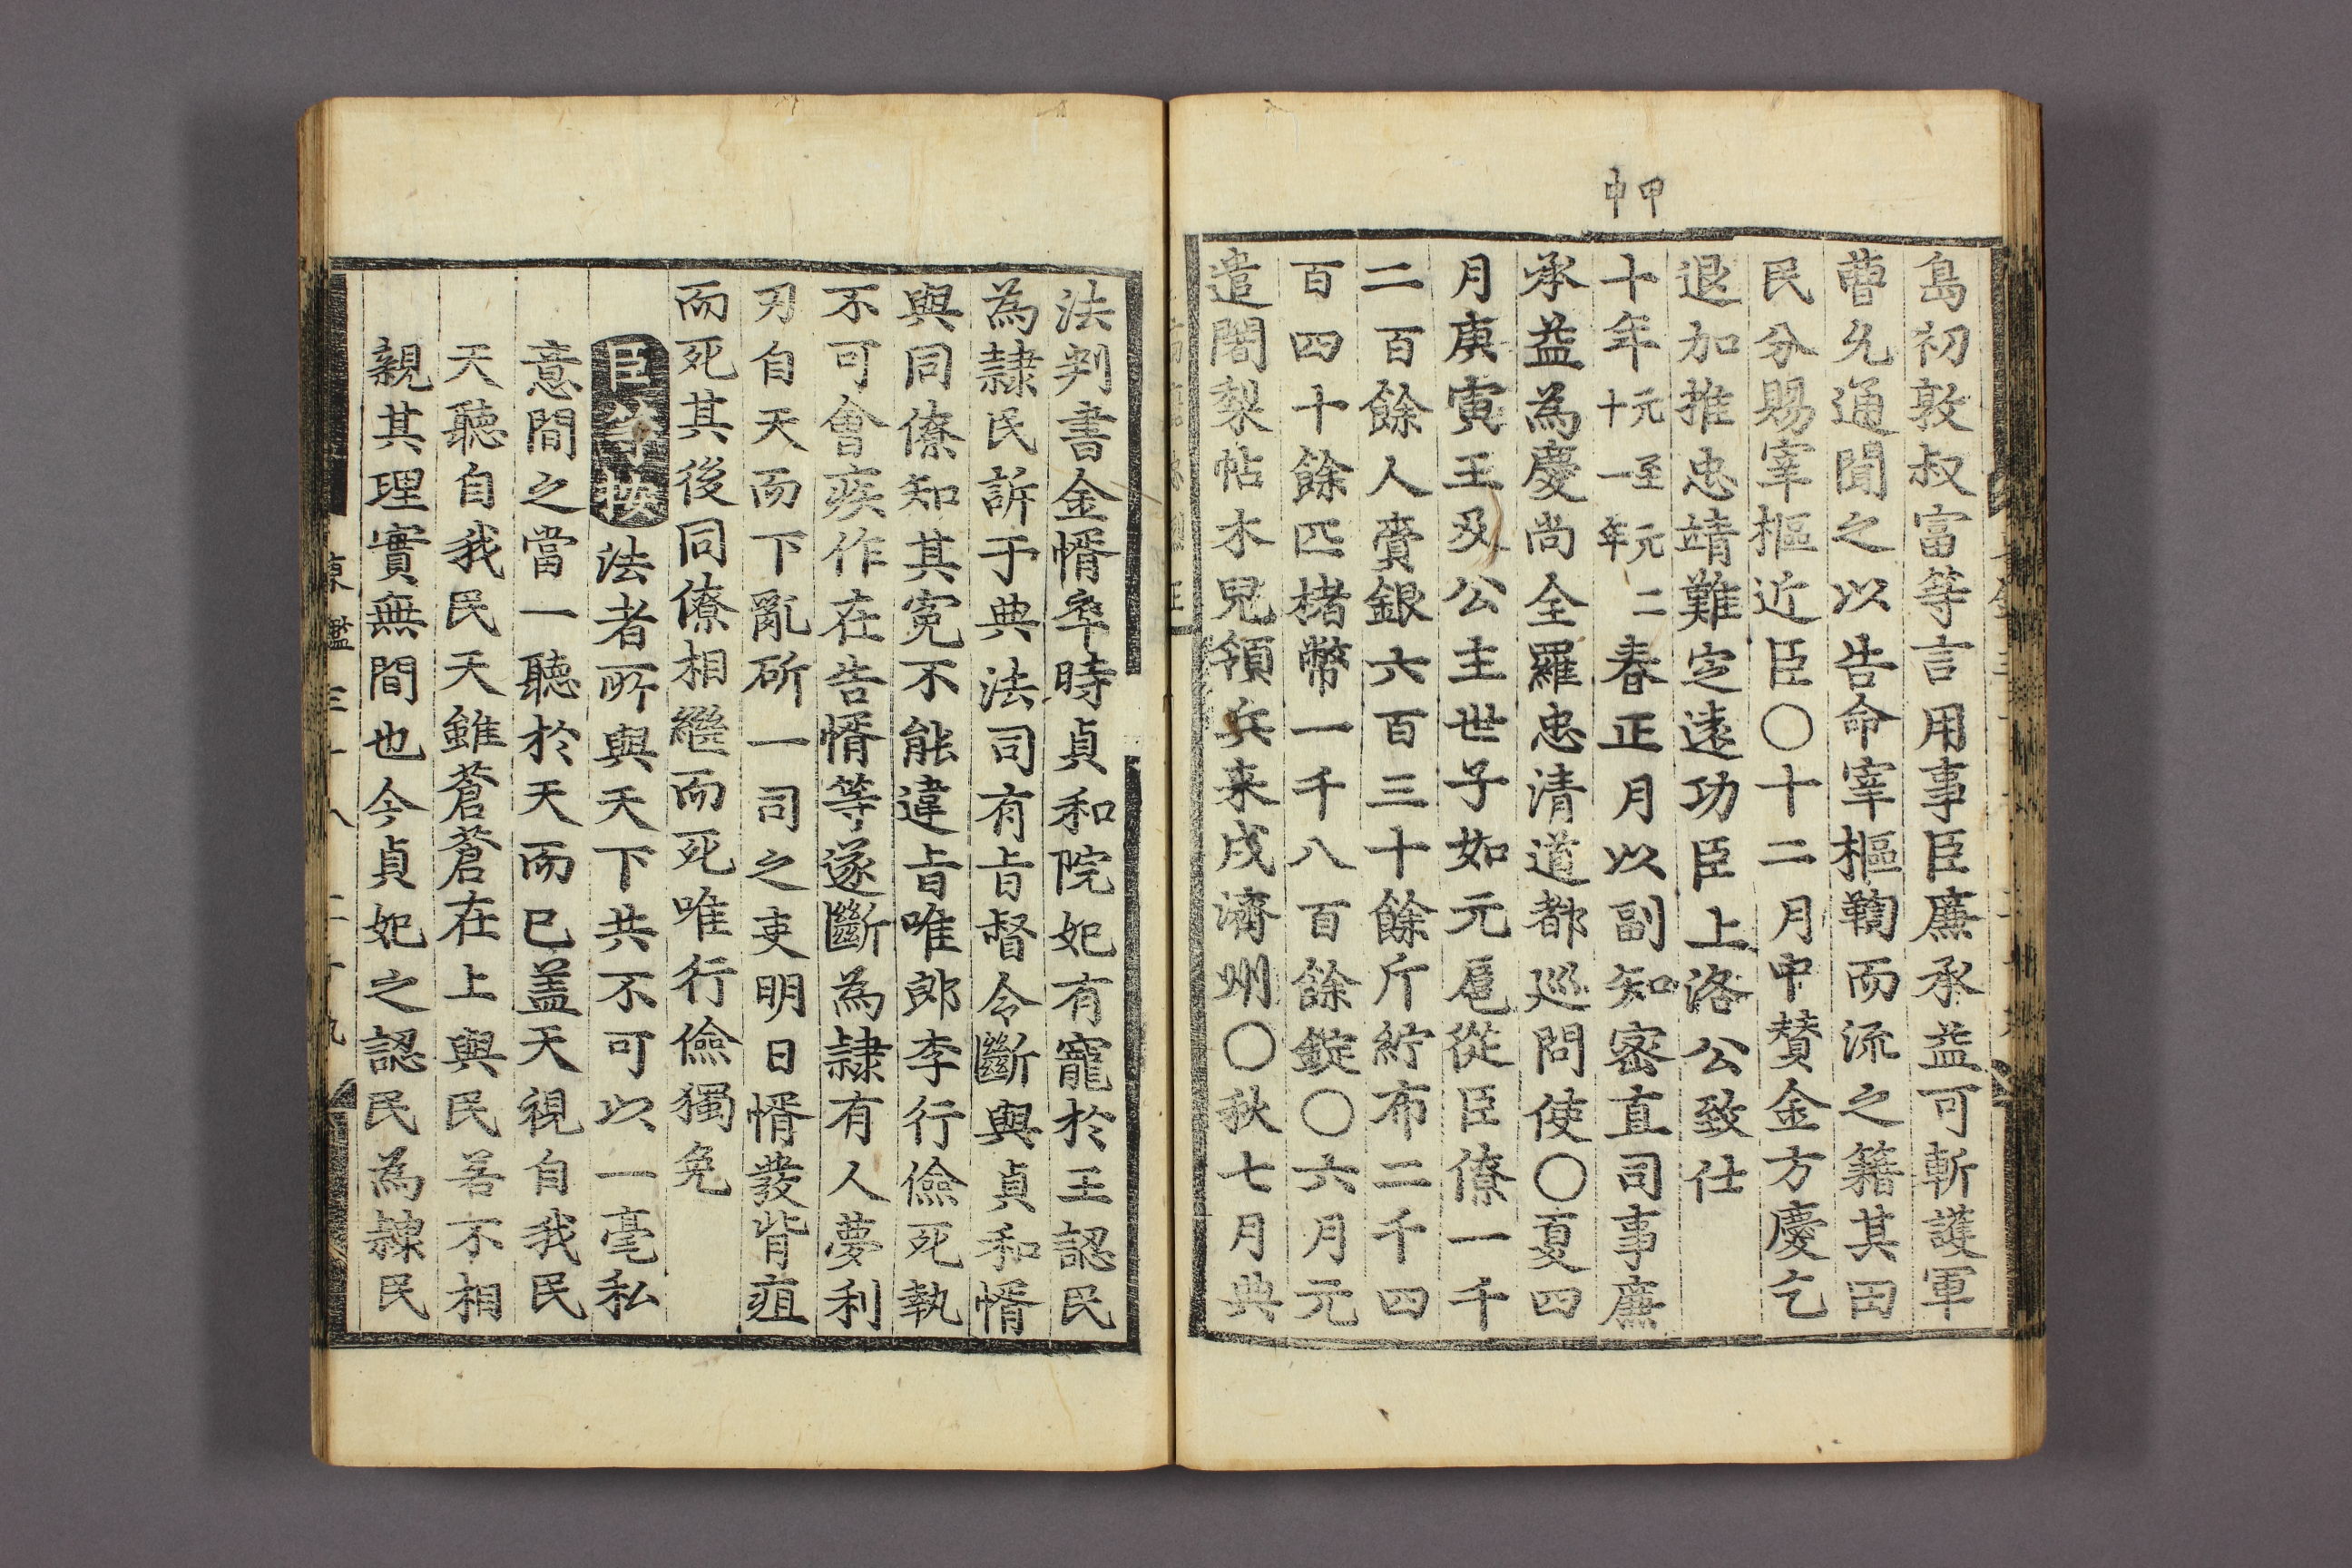 甲申
島初敦叔富等言用事臣廉承益可斬護軍
曹允通聞之以告命宰樞鞫而流之籍其田
民分賜宰樞近臣〇十二月中賛金方慶乞
退加推忠靖難定遠功臣上洛公致仕
十年元至元二十一年春正月以副知密直司事廉
承益為慶尚全羅忠清道都巡問使〇夏四
月庚寅王及公主世子如元扈從臣僚一千
二百餘人賫銀六百三十餘斤紵布二千四
百四十餘匹楮幣一千八百餘錠〇六月元
遣闍梨帖木兒領兵来戍濟州〇秋七月典
法判書金㥠卒時貞和院妃有寵於王認民
為隷民訴于典法司有旨督令斷與貞和㥠
與同僚知其寃不能違旨唯郎李行儉死執
不可會疾作在告㥠等遂斷為隷有人夢利
刃自天而下亂斫一司之吏明日㥠發背疽
而死其後同僚相繼而死唯行儉獨免
臣等按法者所與天下共不可以一毫私
意間之當一聽於天而已盖天視自我民
天聽自我民天雖蒼蒼在上與民若不相
親其理實無間也今貞妃之認民為隷民
東鑑三十八 二十九